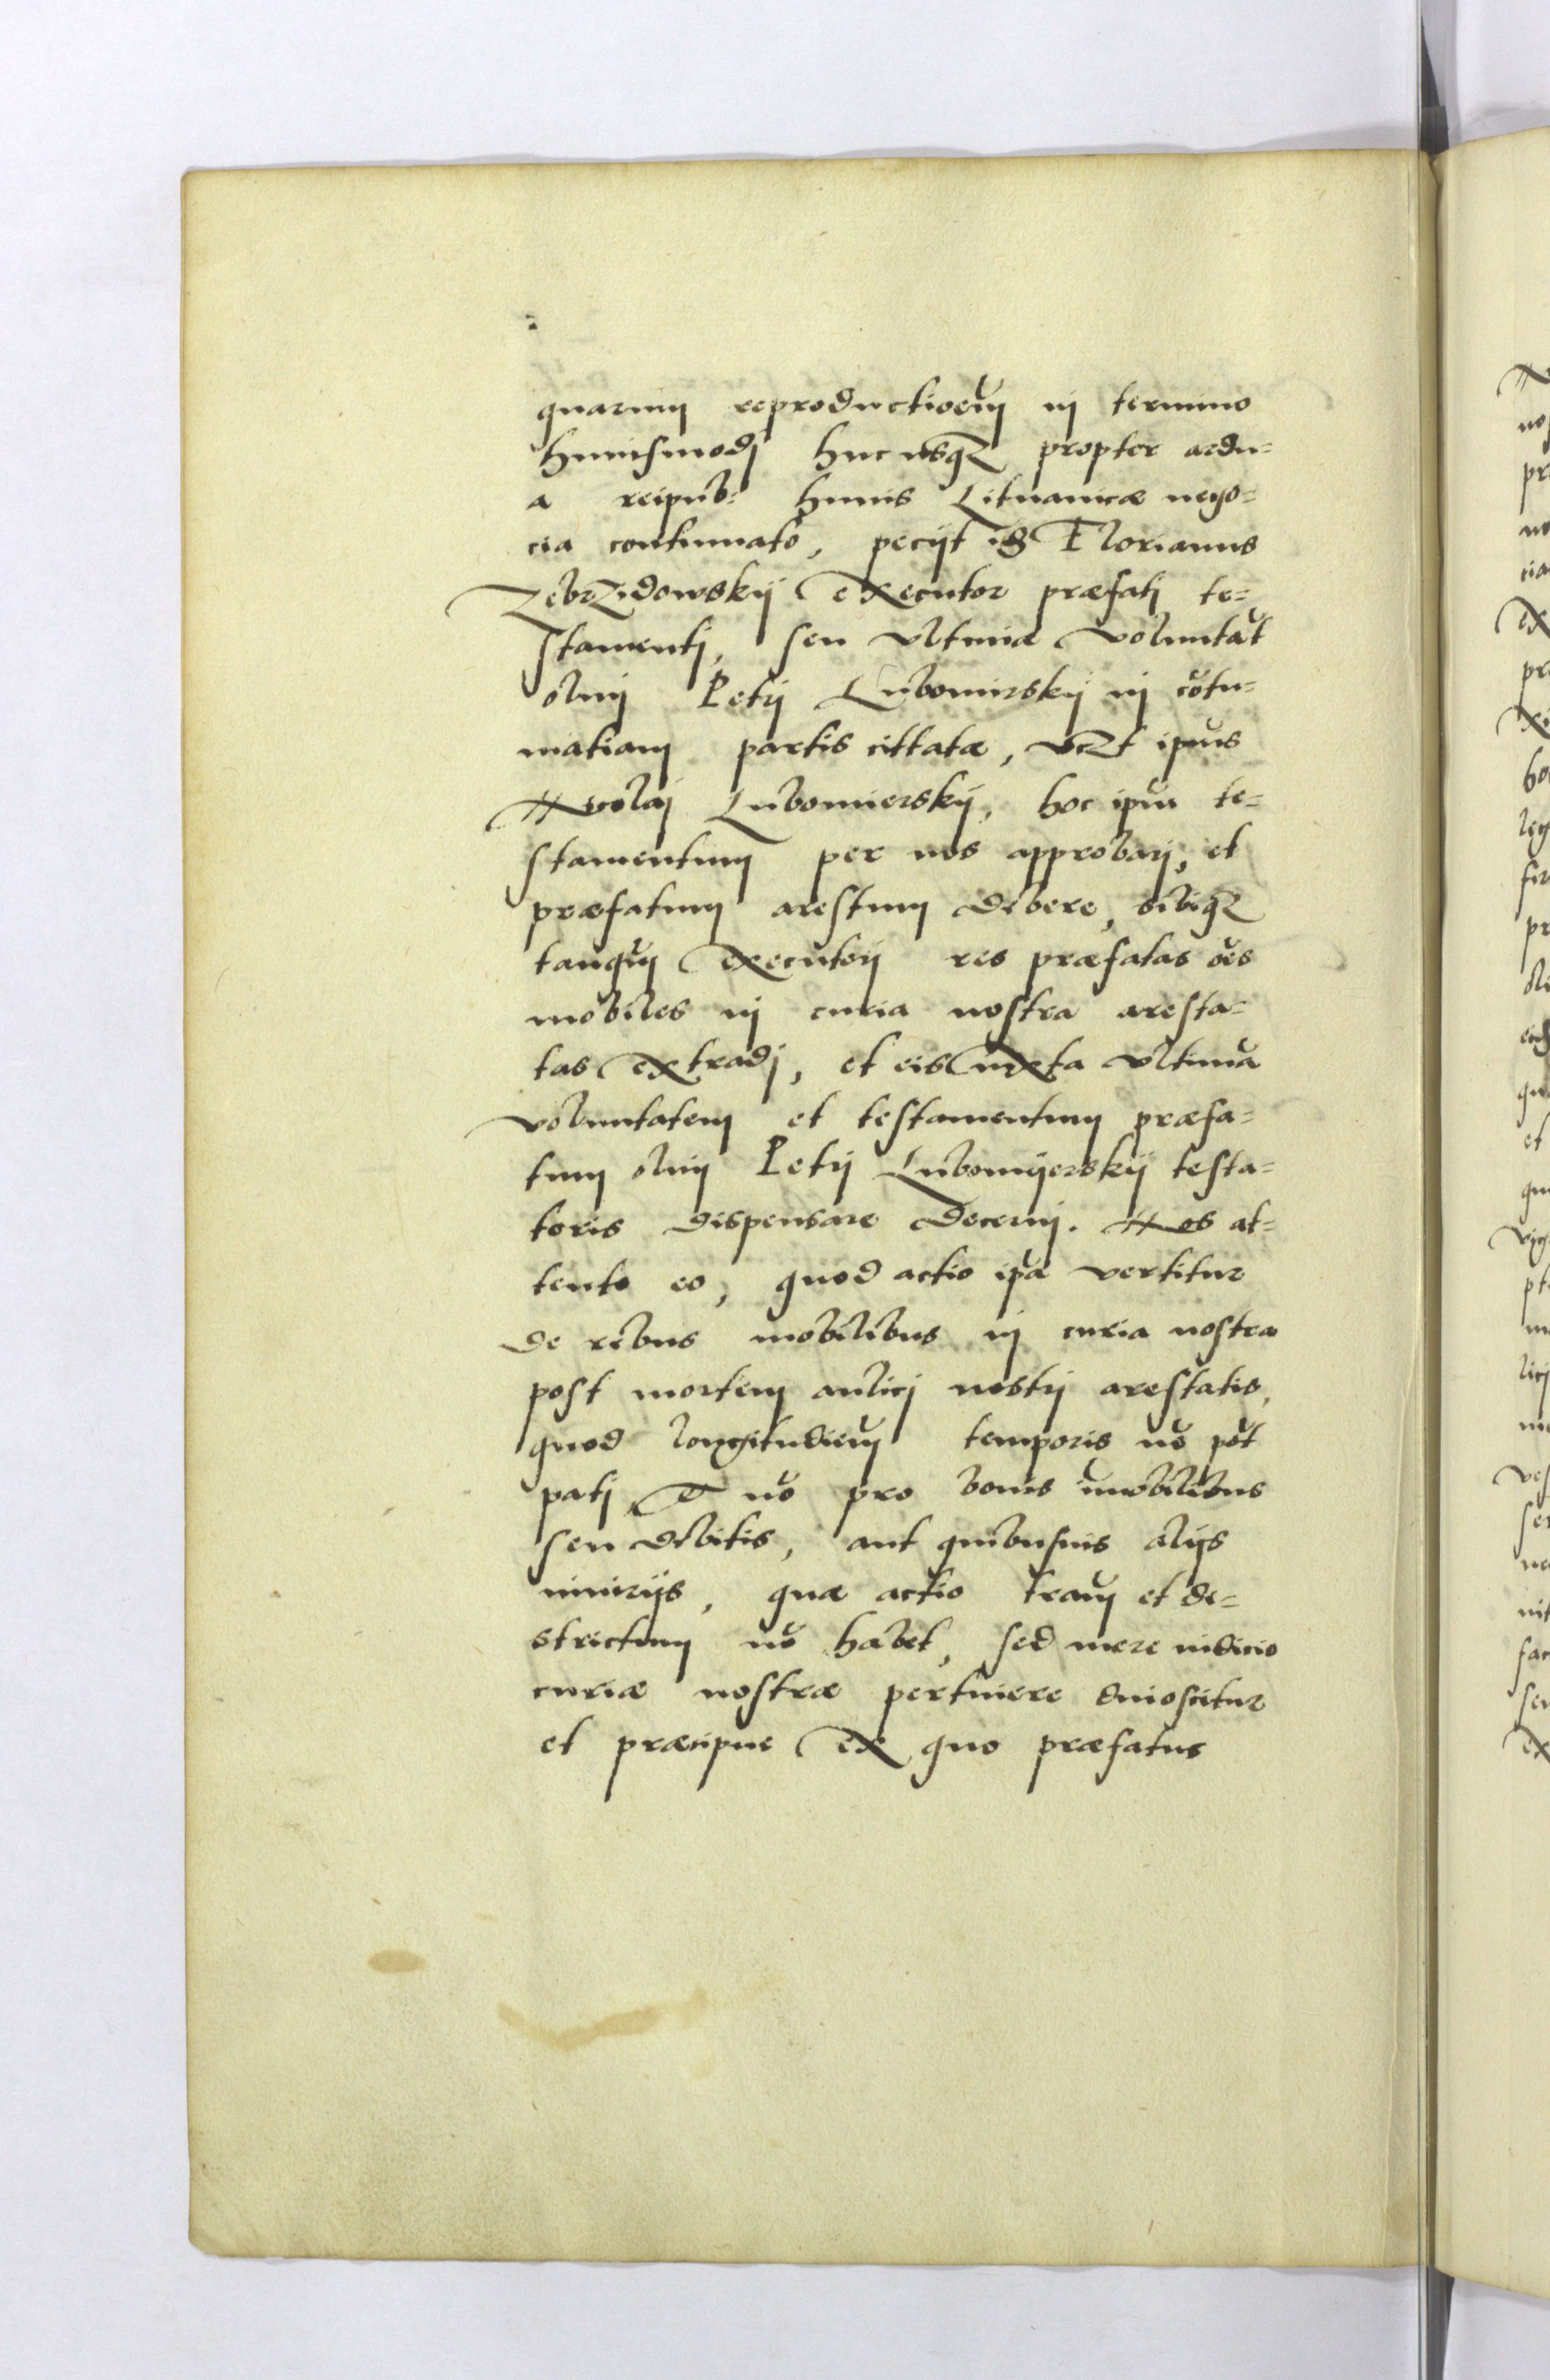 quarum reproductioēm in termino
huiusmodj huc usq₃ propter ardu-
a reipub: huius Lituanicæ nego-
cia continuato, pecijt is Florianus
Zebrzidowskij Executor præfatj te-
stamentj, seu vltimæ voluntat̄
olim Petrj Lubomirskij in cōtu-
matiam partis cittatæ, vc₃t ipīus
Nicolaj Lubomierskij, hoc ipm̄ te-
stamentum per nos approbarj, et
præfatum arestum debere, sibiq₃
tanq̄m Executorj res præfatas ōes
mobiles in curia nostra aresta-
tas extradj, et eis iuxta vltimā
voluntatem et testamentum præfa-
tum olim Petrj Lubomijerskij testa-
toris dispensare decernj. Nos at-
tento eo, quod actio ipā vertitur
de rebus mobilibus in curia nostra
post mortem aulicj nostrj arestatis,
quod longitudiēm temporis nō pōt
patj, Et nō pro bonis īmobilibus
seu debitis, aut quibusuis alijs
iniurijs, quæ actio trām et di-
strictum nō habet, sed mere iudicio
curiæ nostræ pertinere dinoscitur
et præcipue Ex quo præfatus